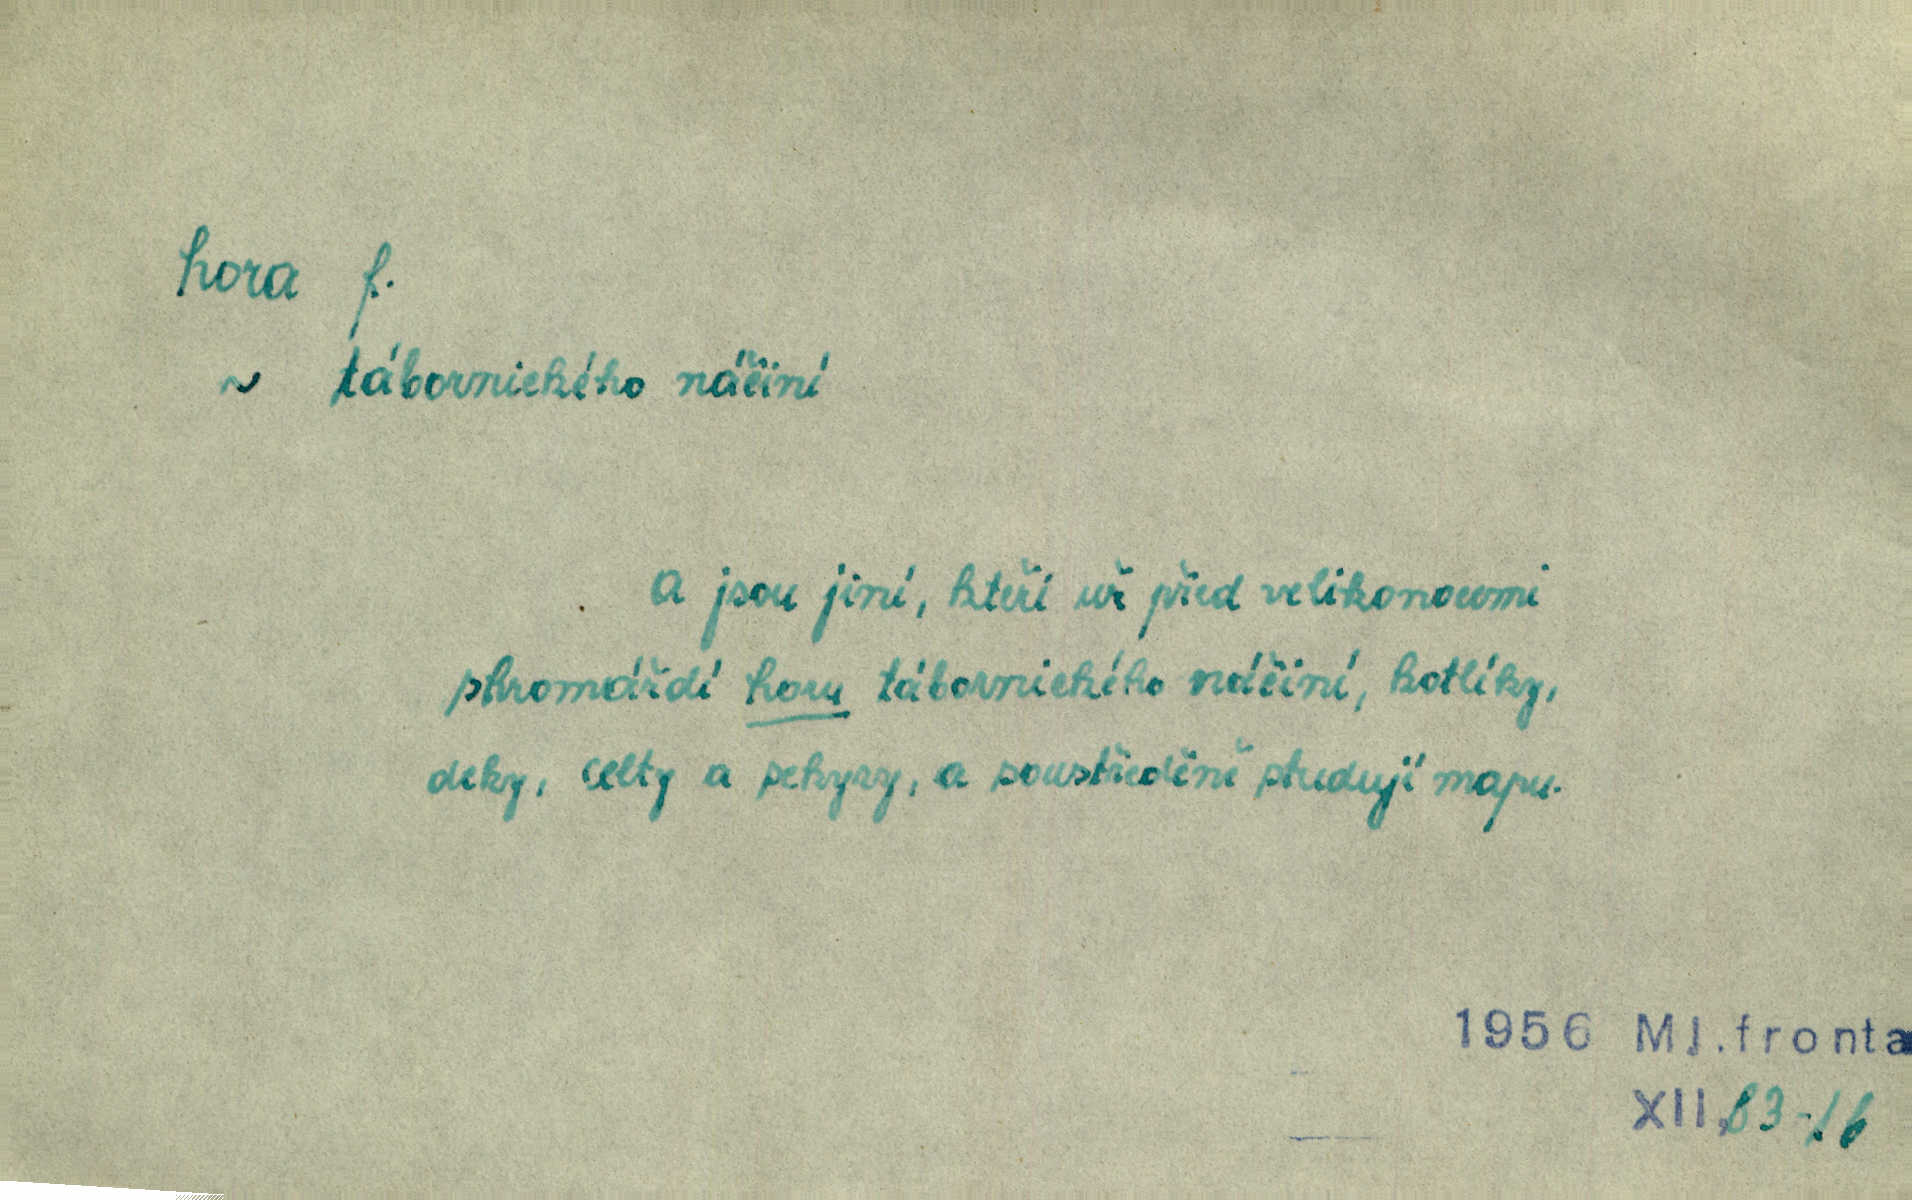 hora f.
~ tábornického náčiní
A jsou jiní, kteří už před velikonocemi
shromáždí horu tábornického náčiní, kotlíky,
deky, celty a sekyry, a soustředěně studují mapu.
1956 Ml.fronta
XII, 83 -